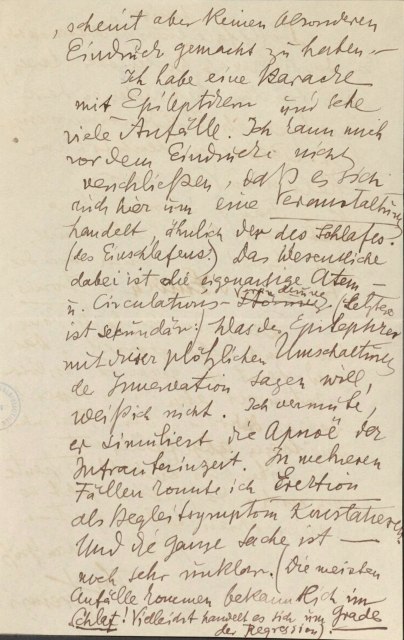 , scheint aber keinen besonderen
Eindruck gemacht zu haben –
Ich habe eine Baracke
mit Epileptikern und sehe
viele Anfälle. Ich kann mich
vor dem Eindrucke nicht
verschließen, daß es sich
auch hier um eine Veranstaltung
handelt ähnlich der des Schlafes.
(des Einschlafens!) Das Wesentliche
dabei ist die eigenartige Atem-
u. Circulations- (Letztere
ist sekundär.) Was der Epileptiker
mit dieser plötzlichen Umschaltung
der Innervation sagen will,
weiß ich nicht. Ich vermute,
er simuliert die Apnoë der
Intrauterinzeit. In mehreren
Fällen konnte ich Erektion
als Begleitsymptom konstatieren.
Und die ganze Sache ist –
noch sehr unklar. (Die meisten
Anfälle kommen bekanntlich im
Schlaf. Vielleicht handelt es sich um Grade
der Regression).